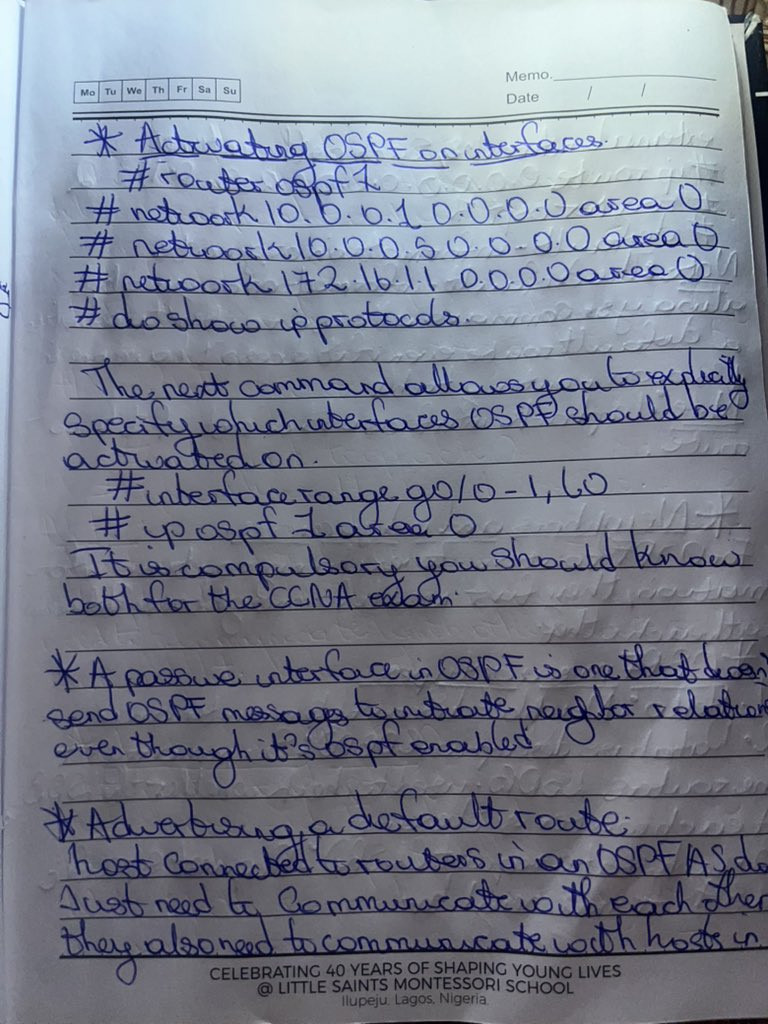 Mo Tu We Th Fr Sa Su
Memo.
Date / /
* Activating OSPF on interfaces.
# router ospf 1
# network 10.0.0.1 0.0.0.0 area 0
# network 10.0.0.5 0.0.0.0 area 0
# network 172.16.1.1 0.0.0.0 area 0
# do show ip protocols.
The next command allows you to explicitly
specify which interfaces OSPF should be
activated on.
# interface range g0/0-1, l0
# ip ospf 1 area 0
It is compulsory you should know
both for the CCNA exam.
* A passive interface in OSPF is one that doesn'
send OSPF messages to initiate neighbor relation
even though it's ospf enabled
* Advertising a default route:
host connected to routers in an OSPF AS do
Just need to Communicate with each other
they also need to communicate with hosts in
CELEBRATING 40 YEARS OF SHAPING YOUNG LIVES
@ LITTLE SAINTS MONTESSORI SCHOOL
Ilupeju, Lagos, Nigeria.